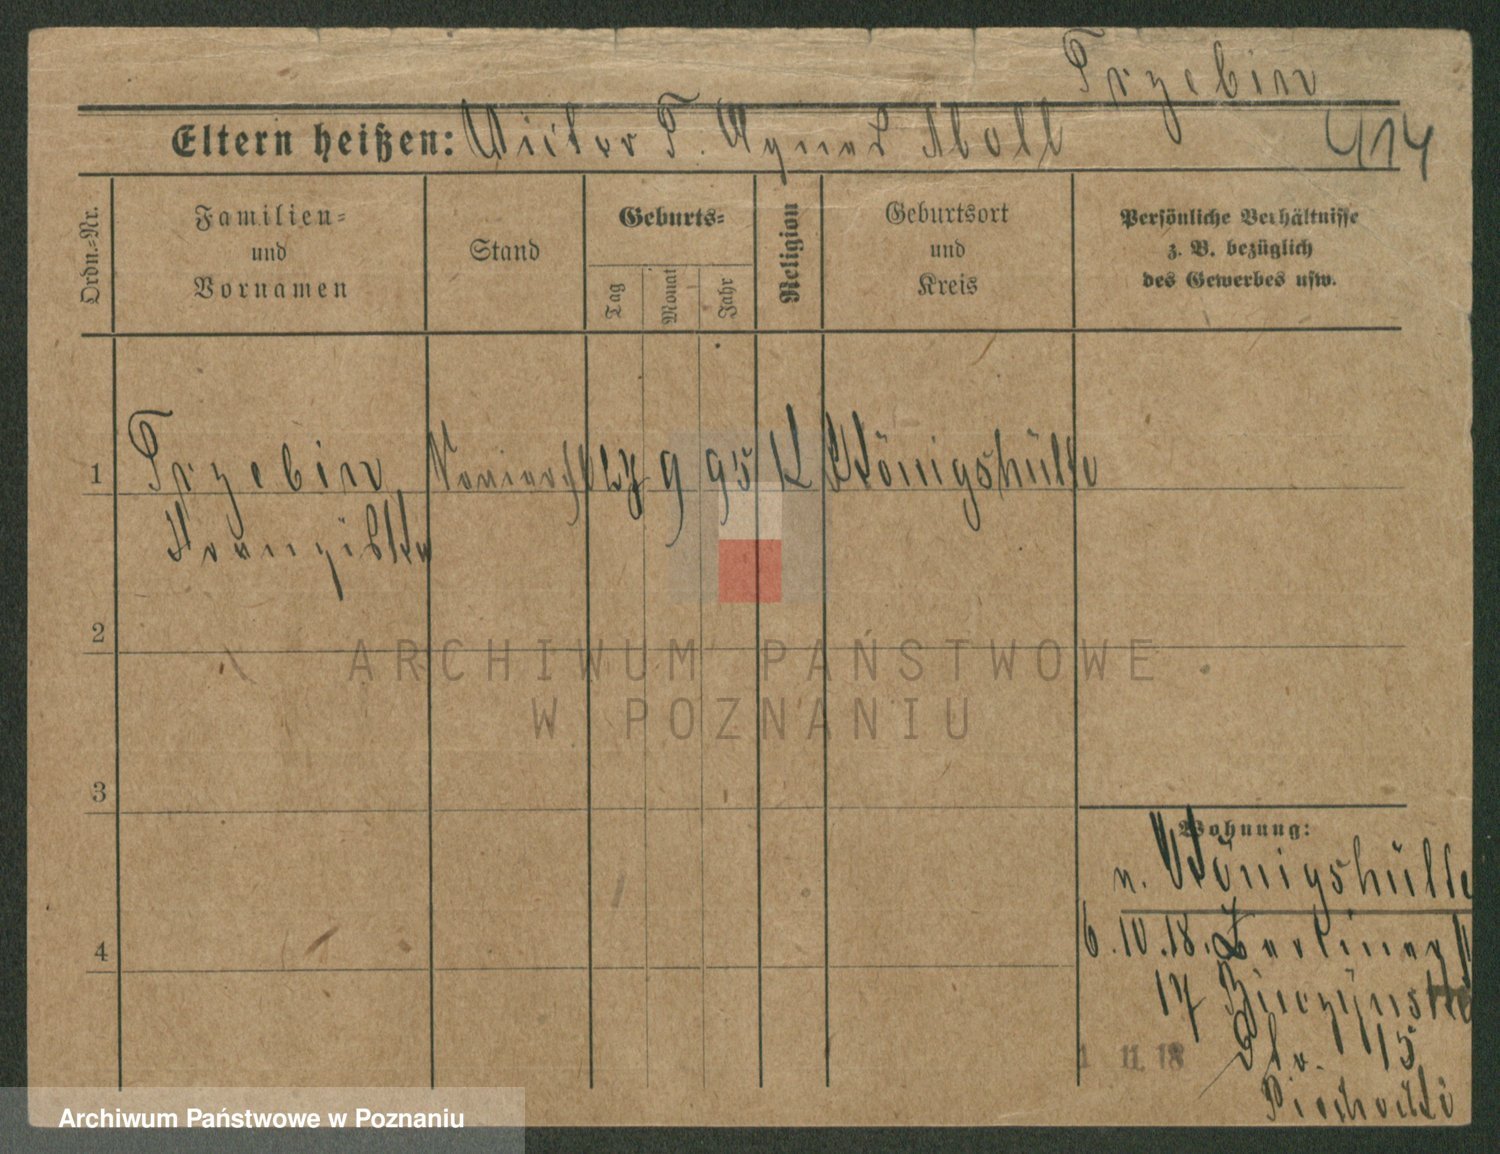 Przebin
Eltern heißen: Victor P. Agnes Kloll
414
Ordn.=Nr.
Familien=
und
Vornamen
Stand
Geburts=
Tag
Monat
Jahr
Religion
Geburtsort
und
Kreis
Persönliche Verhältnisse
z. B. bezüglich
des Gewerbes usw.
1 Przebin 9 95 K Königshütte
Franziska
2
ARCHIWUM PAŃSTWOWE
W POZNANIU
3
Wohnung:
n. Königshütte
6.10.18. Berliner
4
17
1 11. 18
15
Archiwum Państwowe w Poznaniu